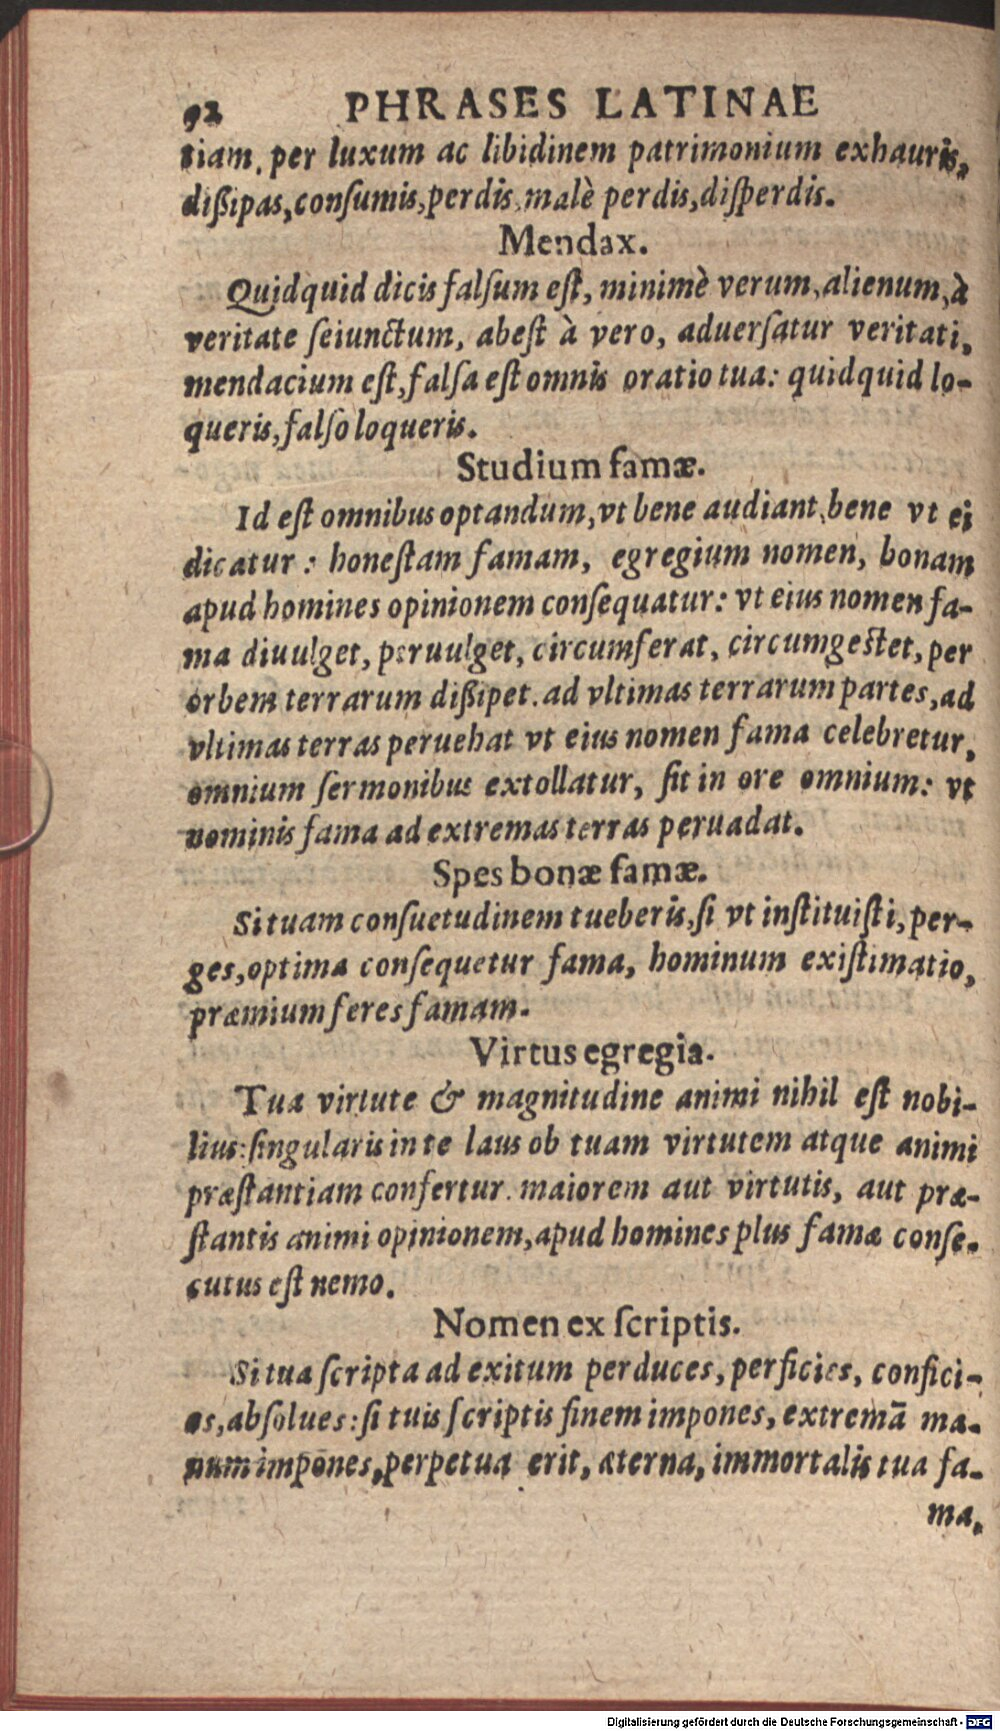 92 PHRASES LATINAE
tiam, per luxum ac libidinem patrimonium exhauris,
dißipas, conſumis, perdis, malè perdis, diſperdis.
Mendax.
Quidquid dicis falſum eſt, minimè verum, alienum, à
veritate ſeiunctum, abeſt à vero, aduerſatur veritati,
mendacium eſt, falſa eſt omnis oratio tua: quidquid lo-
queris, falſo loqueris.
Studium famæ.
Id eſt omnibus optandum, vt bene audiant, bene vt ei
dicatur: honeſtam famam, egregium nomen, bonam
apud homines opinionem conſequatur: vt eius nomen fa-
ma diuulget, peruulget, circumferat, circumgeſtet, per
orbem terrarum dißipet. ad vltimas terrarum partes, ad
vltimas terras peruehat vt eius nomen fama celebretur,
omnium ſermonibus extollatur, ſit in ore omnium: vt
nominis fama ad extremas terras peruadat.
Spes bonæ famæ.
Si tuam conſuetudinem tueberis, ſi vt inſtituiſti, per-
ges, optima conſequetur fama, hominum exiſtimatio,
præmium feres famam.
Virtus egregia.
Tua virtute & magnitudine animi nihil eſt nobi-
lius: ſingularis in te laus ob tuam virtutem atque animi
præſtantiam confertur. maiorem aut virtutis, aut præ-
ſtantis animi opinionem, apud homines plus famæ conſe-
cutus eſt nemo.
Nomen ex ſcriptis.
Si tua ſcripta ad exitum perduces, perficies, confici-
es, abſolues: ſi tuis ſcriptis finem impones, extremã ma-
num impones, perpetua erit, æterna, immortalis tua fa-
ma,
Digitalisierung gefördert durch die Deutsche Forschungsgemeinschaft - DFG